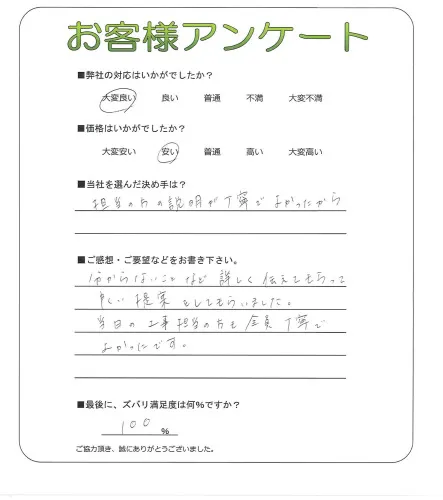 お客様アンケート
■弊社の対応はいかがでしたか？
大変良い 良い 普通 不満 大変不満
■価格はいかがでしたか？
大変安い 安い 普通 高い 大変高い
■当社を選んだ決め手は？
担当の方の説明が丁寧でよかったから
■ご感想・ご要望などをお書き下さい。
分からないことなど詳しく伝えてもらって
良い提案をしてもらいました。
当日の工事担当の方も全員丁寧で
よかったです。
■最後に、ズバリ満足度は何％ですか？
100 %
ご協力頂き、誠にありがとうございました。